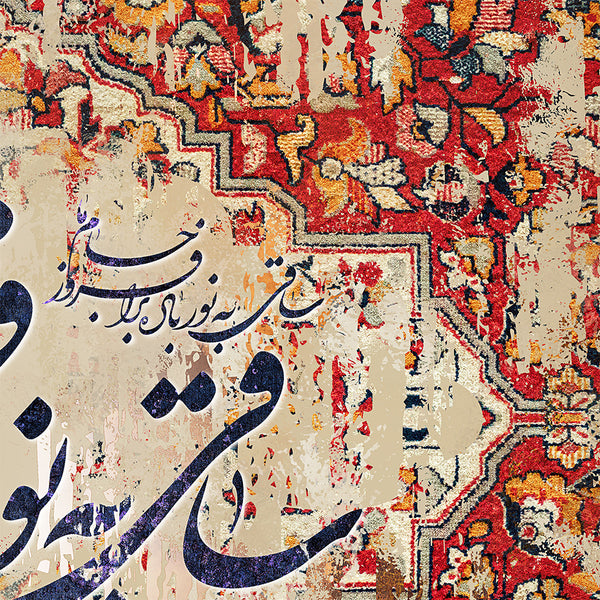 ساقی به نور باده برافروز جام ما
ساقی به نو